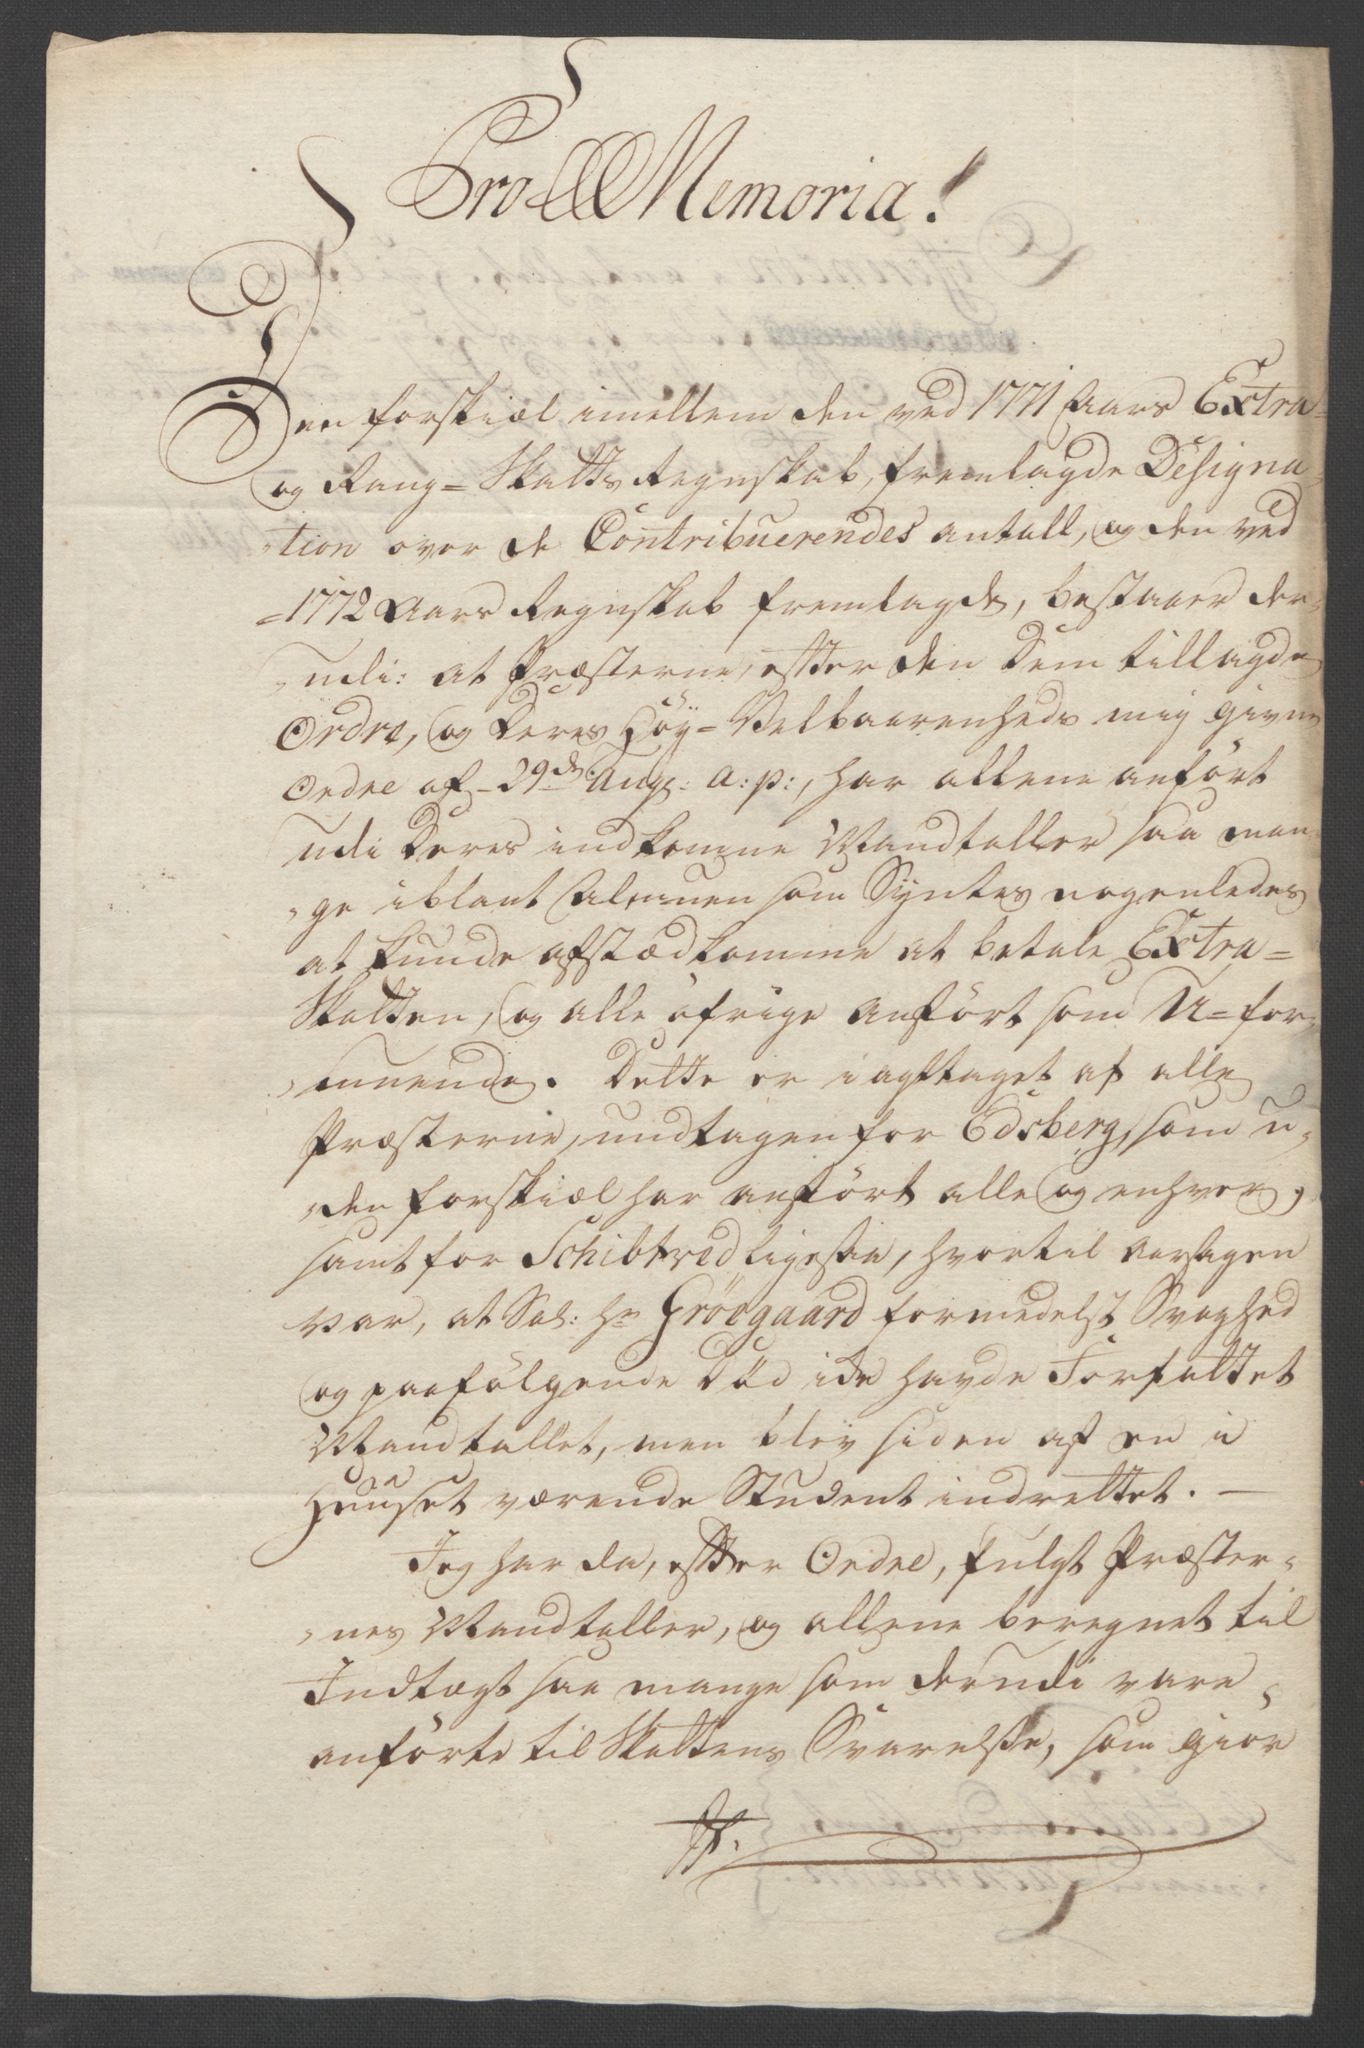 Pro Memoria!
Den forskiæl imellem den ved 1771 Aars Extra-
og Rang-Skatts Regnskab, fremlagde Designa-
-tion over de Contribuerendes antall, og den ved
-1772 Aars Regnskab fremlagde, bestaaer der-
-udi: at Præsterne, efter den Dem tillagde
Ordre, og Deres Höy-Velbaarenheds mig givne
Ordre af 29de Aug: a: p:, har allene anfört
udi Deres indkomne Mandtaller saa man-
-ge iblant Almuen som Syntes nogenledes
at kunde afstædkomme at betale Extra-
Skatten, og alle öfrige anfört som U-for-
-muende. Dette er iagttaget af alle
Præsterne, undtagen for Edsberg, som u-
-den forskiæl har anfört alle og enhver,
samt for Schibtved ligesaa, hvortil Aarsagen
var, at Sal: Hr Gröegaard formedelst Svaghed
og paafölgende Död ide havde Forfattet
Mandtallet, men blev siden af en i
Huuset værende Student indrettet. -
Jeg har da, efter Ordre, fulgt Præster-
-nes Mandtaller, og allene beregnet til
Indtægt saa mange som derudi vare
anförte til Skattens Svarelse, som giör